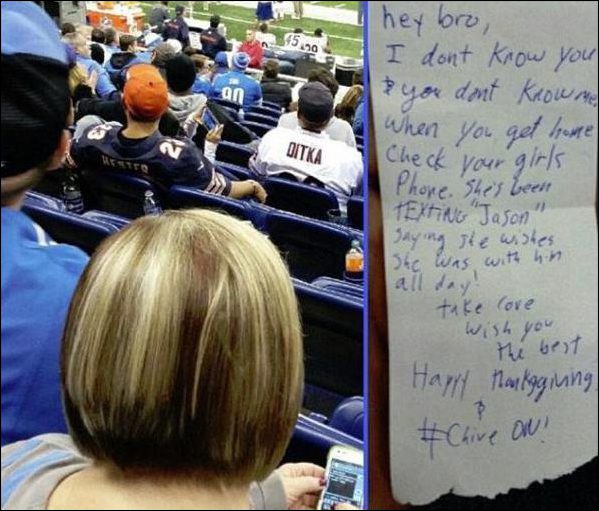 HESTER
23
DITKA
90
45
hey bro,
I dont know you
& you dont know me,
when you get home
Check your girls
Phone. She's been
TEXTING "Jason"
Saying she wishes
She was with him
all day!
take care
wish you
the best
Happy Thanksgiving
&
#Chive ON!